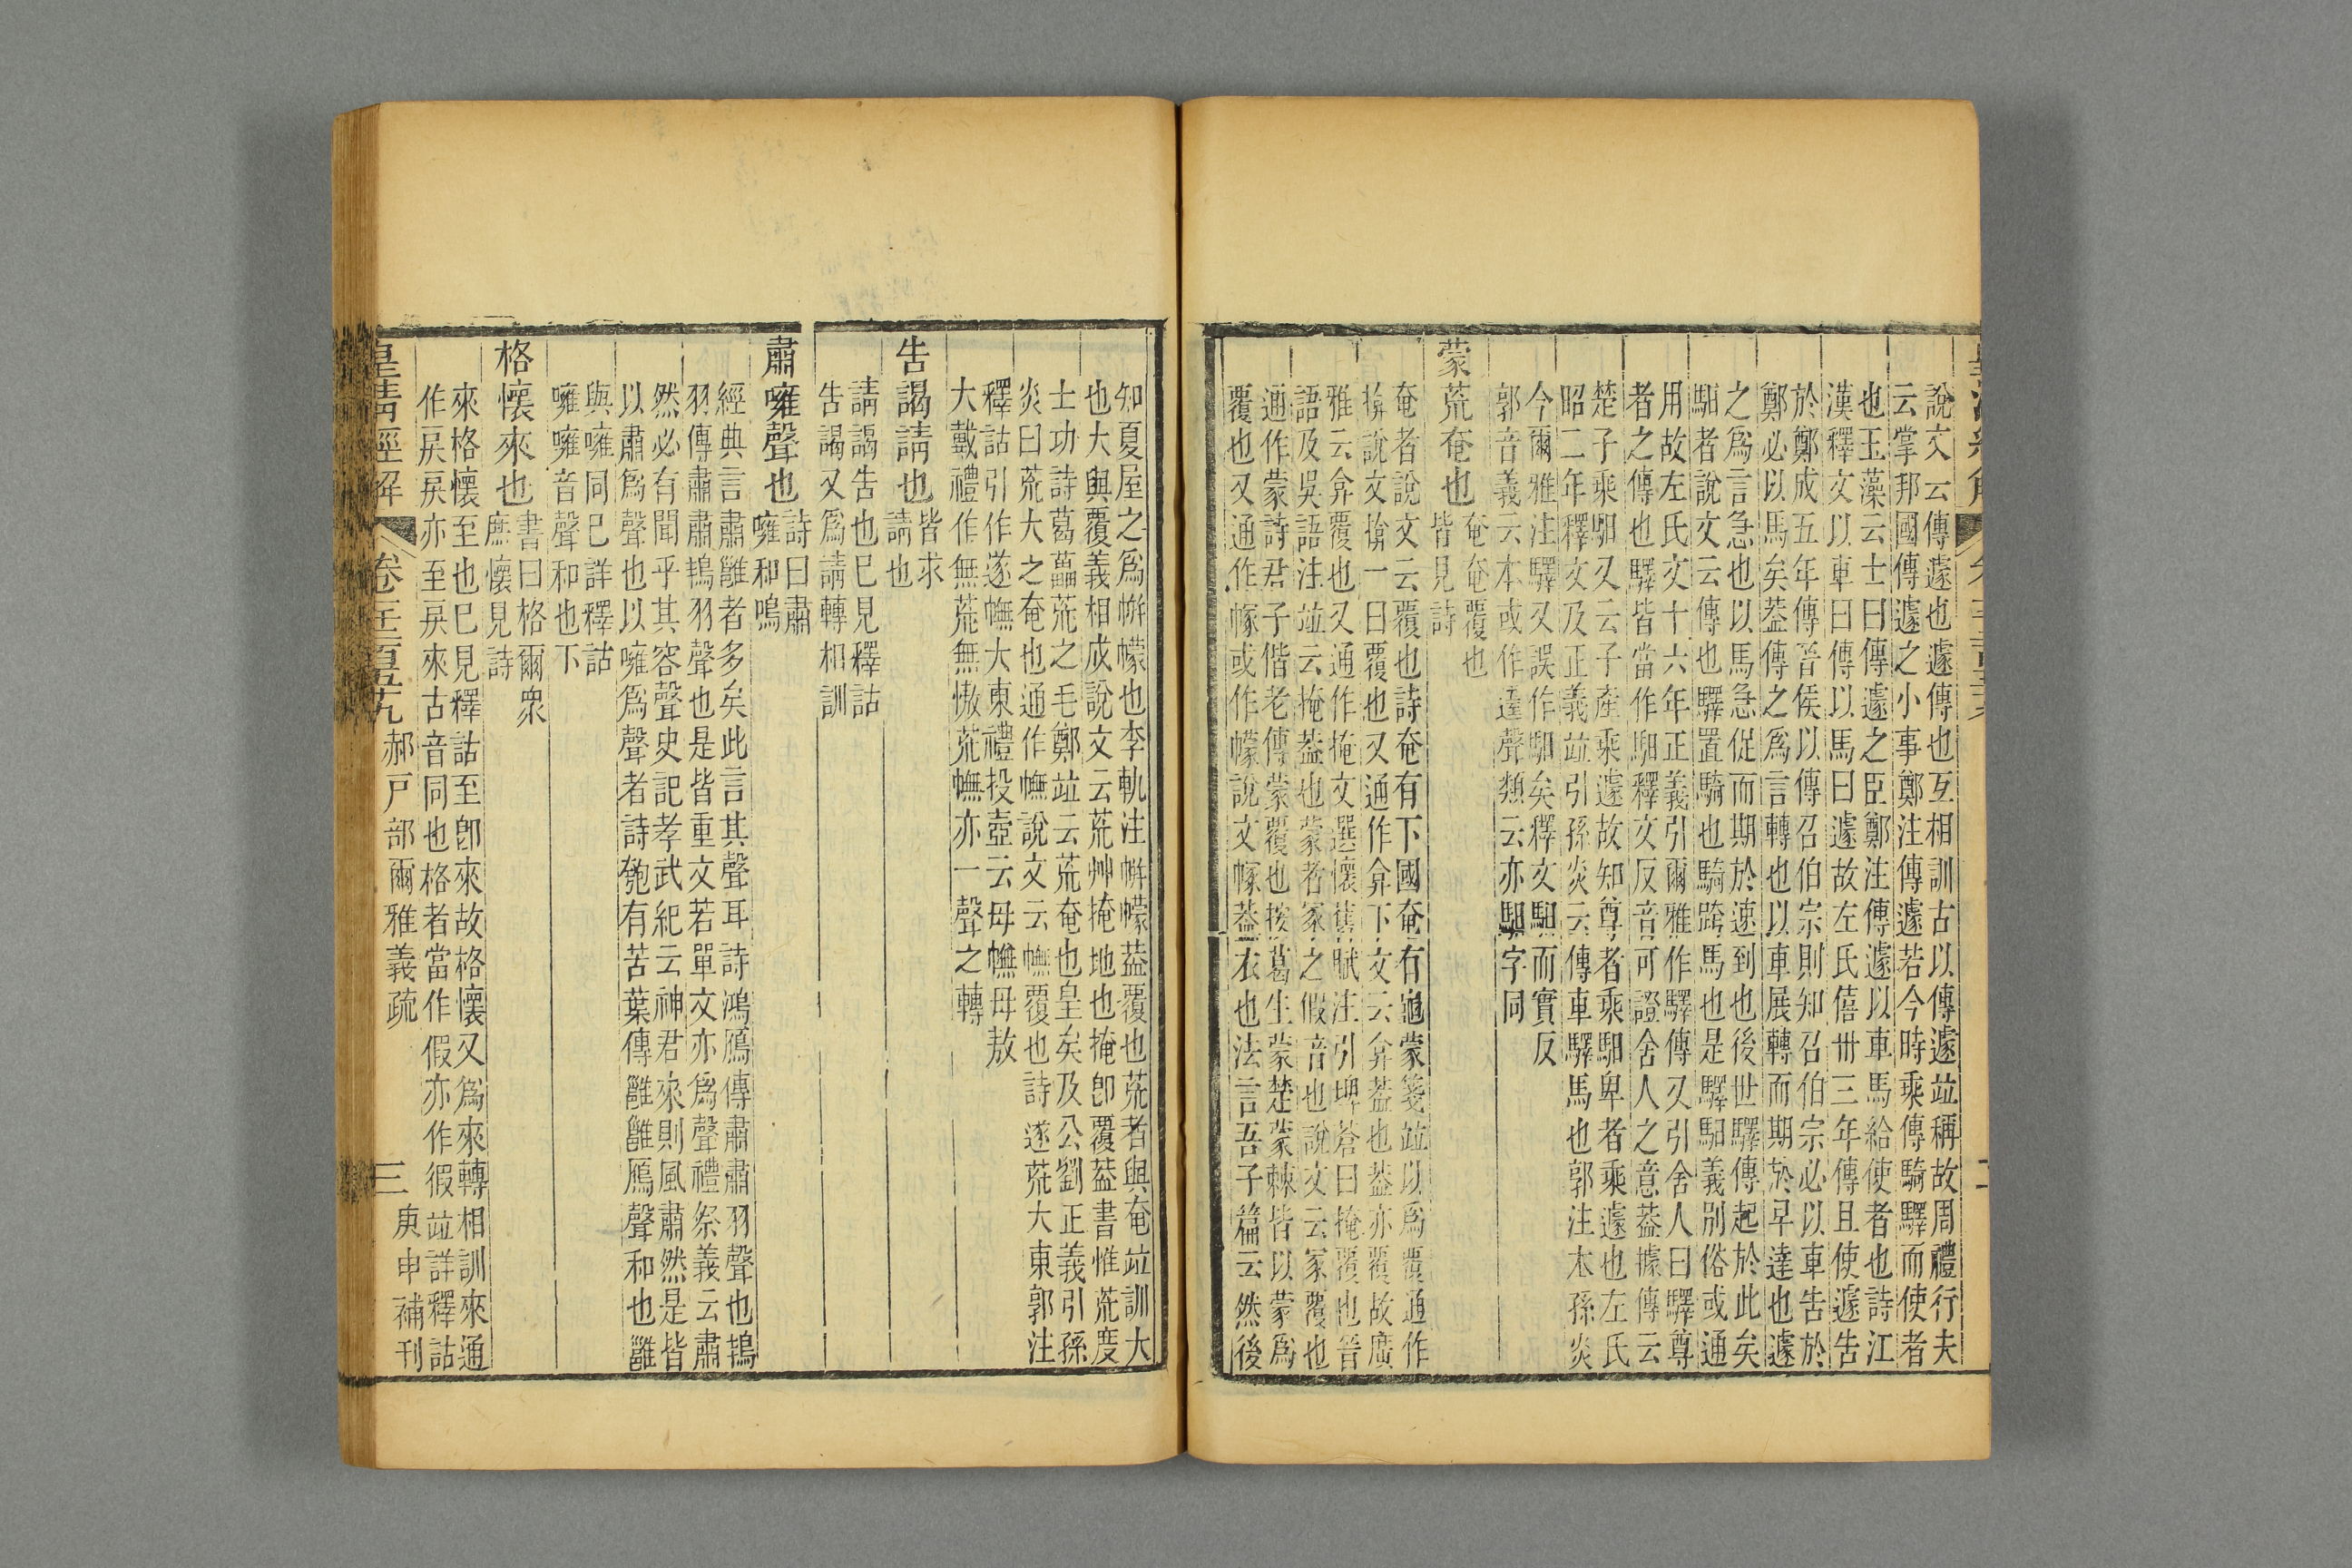 說文云傳遽也遽傳也互相訓古以傳遽竝稱故周禮行夫
云掌邦國傳遽之小事鄭注傳遽若今時乘傳騎驛而使者
也玉藻云士曰傳遽之臣鄭注傳遽以車馬給使者也詩江
漢釋文以車曰傳以馬曰遽故左氏僖卅三年傳且使遽告
於鄭成五年傳晉侯以傳召伯宗則知召伯宗必以車告於
鄭必以馬矣葢傳之為言轉也以車展轉而期於早達也遽
之為言急也以馬急促而期於速到也後世驛傳起於此矣
馹者說文云傳也驛置騎也騎跨馬也是驛馹義別俗或通
用故左氏文十六年正義引爾雅作驛傳又引舍人曰驛尊
者之傳也驛皆當作馹釋文反音可證舍人之意葢據傳云
楚子乘馹又云子產乘遽故知尊者乘馹卑者乘遽也左氏
昭二年釋文及正義竝引孫炎云傳車驛馬也郭注本孫炎
今爾雅注驛又誤作馹矣釋文馹而實反
郭音義云本或作遳聲類云亦馹字同
蒙荒奄也
奄奄覆也
皆見詩
奄者說文云覆也詩奄有下國奄有龜蒙箋竝以為覆通作
揜說文揜一曰覆也又通作弇下文云弇葢也葢亦覆故廣
雅云弇覆也又通作掩文選懷舊賦注引埤蒼曰掩覆也晉
語及吳語注竝云掩葢也蒙者冡之假音也說文云冡覆也
通作蒙詩君子偕老傳蒙覆也按葛生蒙楚蒙棘皆以蒙為
覆也又通作幏或作幪說文幏葢衣也法言吾子篇云然後
知夏屋之為帡幪也李軌注帡幪葢覆也荒者與奄竝訓大
也大與覆義相成說文云荒艸掩地也掩卽覆葢書惟荒度
土功詩葛藟荒之毛鄭竝云荒奄也皇矣及公劉正義引孫
炎曰荒大之奄也通作幠說文云幠覆也詩遂荒大東郭注
釋詁引作遂幠大東禮投壺云毋幠毋敖
大戴禮作無荒無慠荒幠亦一聲之轉
告謁請也
皆求
請也
請謁告也巳見釋詁
告謁又為請轉相訓
肅噰聲也
詩曰肅
噰和鳴
經典言肅雝者多矣此言其聲耳詩鴻鴈傳肅肅羽聲也鴇
羽傳肅肅鴇羽聲也是皆重文若單文亦為聲禮祭義云肅
然必有聞乎其容聲史記孝武紀云神君來則風肅然是皆
以肅為聲也以噰為聲者詩匏有苦葉傳雝雝鴈聲和也雝
與噰同巳詳釋詁
噰噰音聲和也下
格懷來也
書曰格爾衆
庶懷見詩
來格懷至也巳見釋詁至卽來故格懷又為來轉相訓來通
作戾戾亦至戾來古音同也格者當作假亦作徦竝詳釋詁
皇清經解 卷千二百五十九 郝戶部爾雅義疏 三 庚申補刊